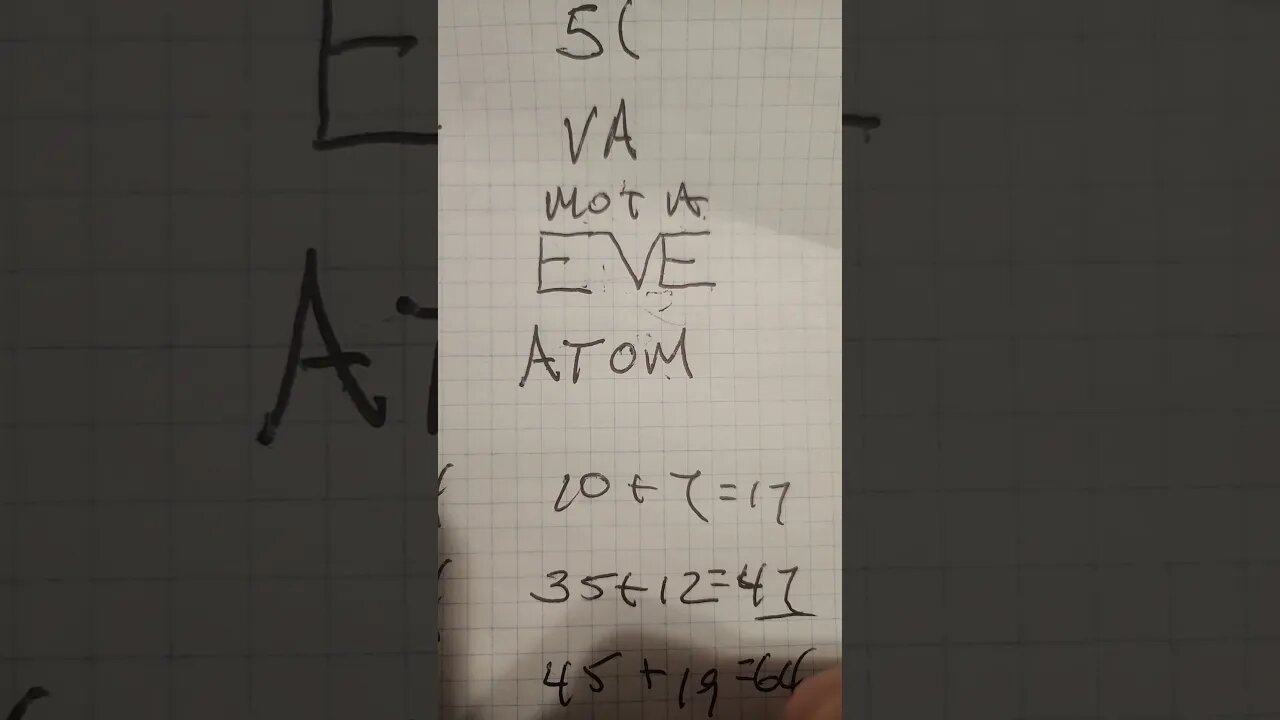 5(
VA
MOT A
EVE
ATOM
10+7=17
35+12=47
45+19=64